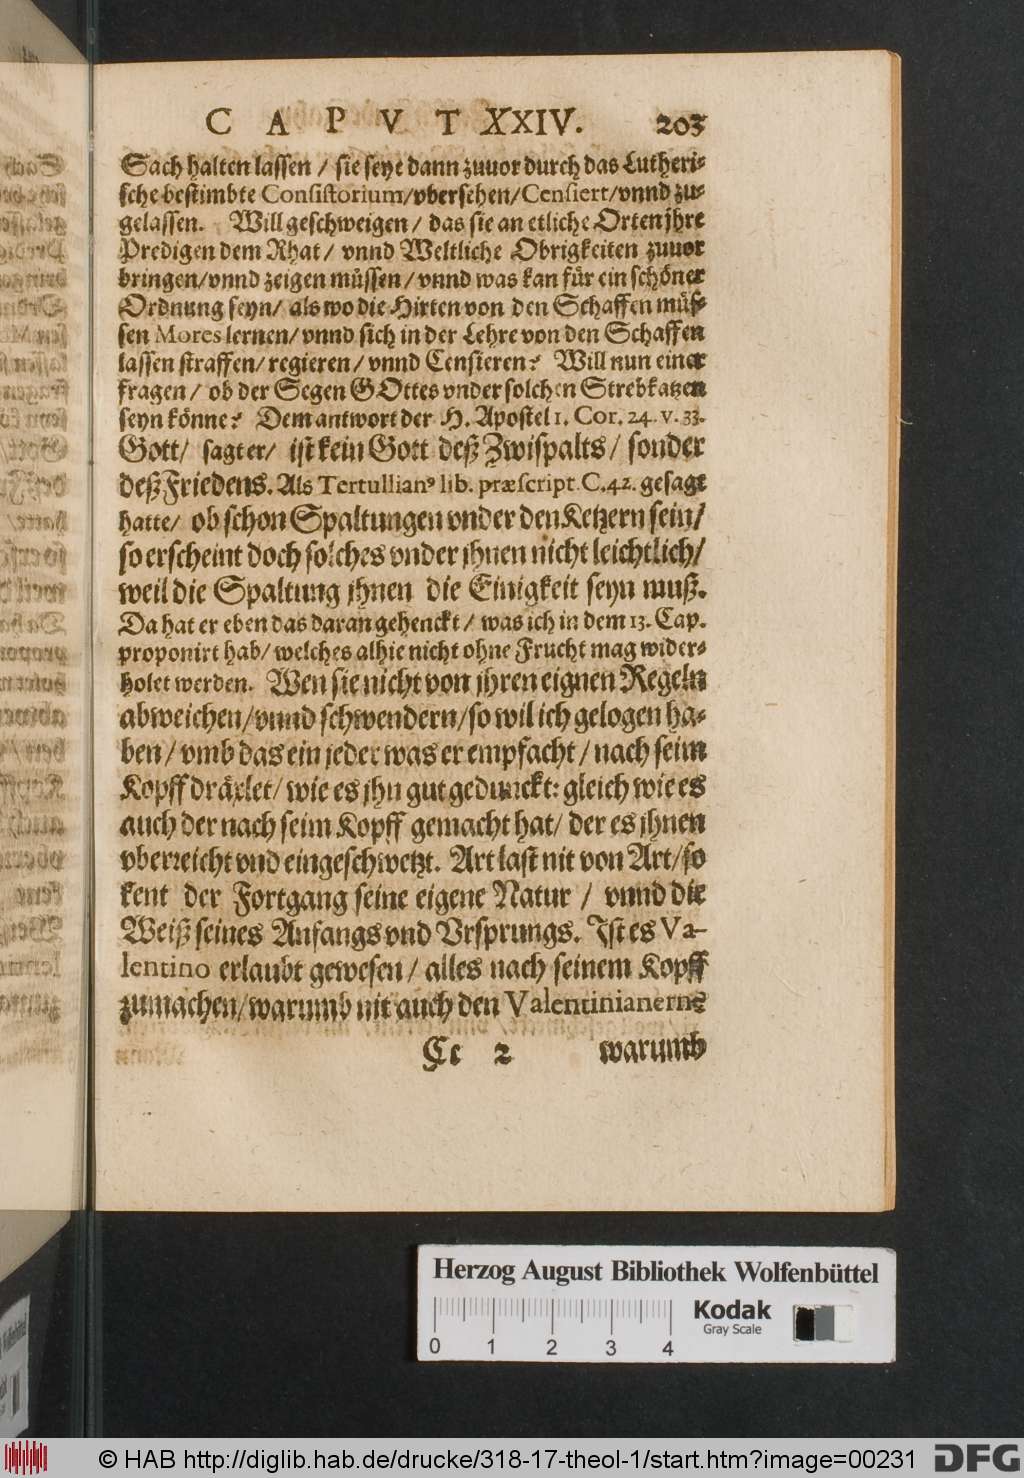 CAPVT XXIV. 203
Sach halten lassen / sie seye dann zuuor durch das Lutheri-
sche bestimbte Consistorium/vbersehen/Censiert/vnnd zu-
gelassen. Will geschweigen / das sie an etliche Orten jhre
Predigen dem Rhat / vnnd Weltliche Obrigkeiten zuuor
bringen/vnnd zeigen müssen / vnnd was kan für ein schöner
Ordnung seyn/ als wo die Hirten von den Schaffen müs-
sen Mores lernen/ vnnd sich in der Lehre von den Schaffen
lassen straffen/ regieren / vnnd Censieren? Will nun einer
fragen / ob der Segen GOttes vnder solchen Strebkatzen
seyn könne? Dem antwort der H. Apostel 1. Cor. 24. v. 33.
Gott/ sagt er/ ist kein Gott deß Zwispalts / sonder
deß Friedens. Als Tertullianꝰ lib. præscript. C.42. gesagt
hatte/ ob schon Spaltungen vnder den Ketzern sein/
so erscheint doch solches vnder jhnen nicht leichtlich/
weil die Spaltung jhnen die Einigkeit seyn muß.
Da hat er eben das daran gehenckt / was ich in dem 13. Cap.
proponirt hab/ welches alhie nicht ohne Frucht mag wider-
holet werden. Wen sie nicht von jhren eignen Regeln
abweichen/vnnd schwendern/so wil ich gelogen ha-
ben / vmb das ein jeder was er empfacht / nach seim
Kopff dräxlet/ wie es jhn gut gedunckt: gleich wie es
auch der nach seim Kopff gemacht hat/ der es jhnen
vberreicht vnd eingeschwetzt. Art last nit von Art/so
kent der Fortgang seine eigene Natur / vnnd die
Weiß seines Anfangs vnd Vrsprungs. Ist es Va-
lentino erlaubt gewesen / alles nach seinem Kopff
zumachen/warumb nit auch den Valentinianern?
Cc 2 warumb
Herzog August Bibliothek Wolfenbüttel
Kodak
Gray Scale
0 1 2 3 4
© HAB http://diglib.hab.de/drucke/318-17-theol-1/start.htm?image=00231
DFG